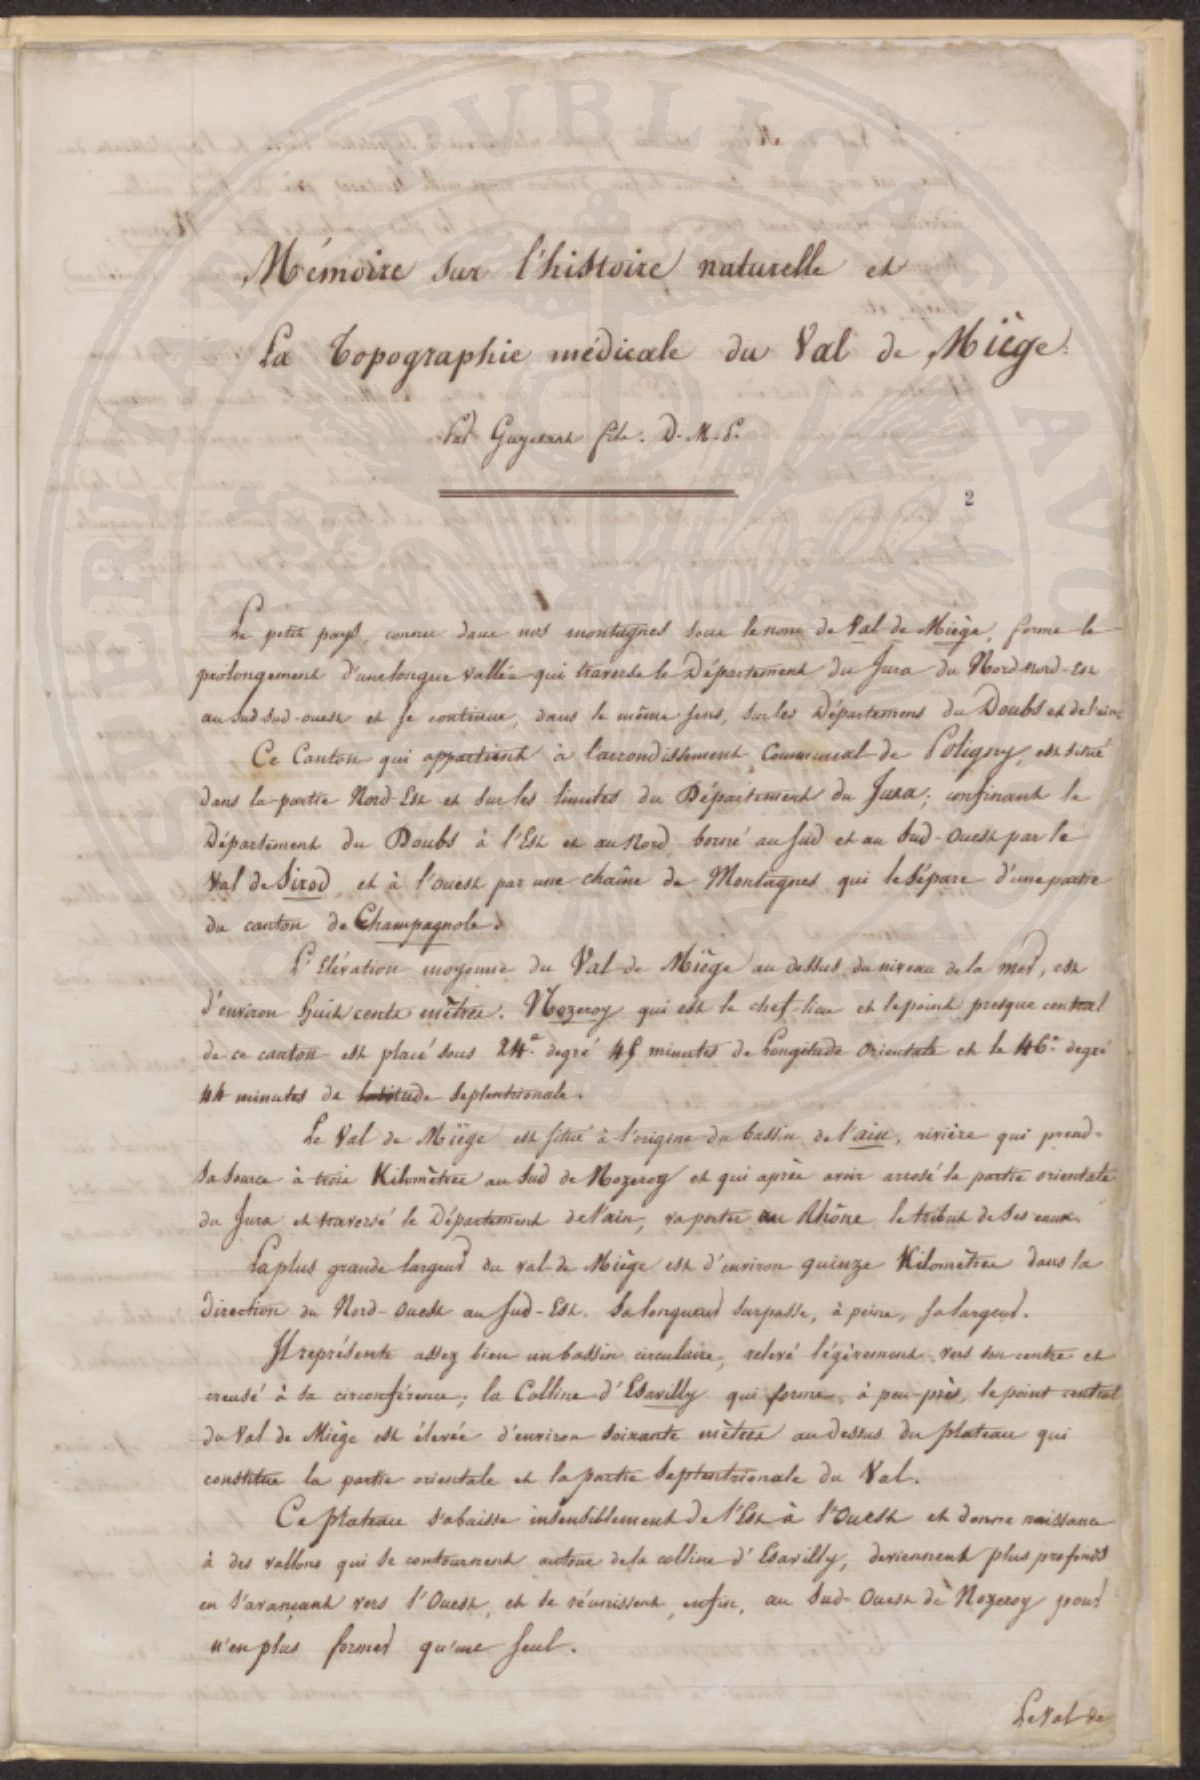 Mémoire sur l'histoire naturelle et
La Topographie médicale du Val de Miège.
Par Guyetant fils. D. M. P.
2
Le petit pays, connu dans nos montagnes sous le nom de Val de Miège, forme le
prolongement d'une longue vallée qui traverse le Département du Jura du Nord-nord-Est
au Sud sud-ouest et se continue, dans le même sens, sur les Départemens du Doubs et de l'ain.
Ce Canton qui appartient à l'arrondissement Communal de Poligny, est situé
dans la partie Nord-Est et sur les limites du Département du Jura; confinant le
Département du Doubs à l'Est et au Nord, borné au Sud et au Sud-Ouest par le
Val de Sirod, et à l'ouest par une chaîne de Montagnes qui le sépare d'une partie
du canton de Champagnole.
L'Elévation moyenne du Val de Miège au dessus du niveau de la mer, est
d'environ huit cents mètres. Nozeroy qui est le chef-lieu et le point presque central
de ce canton est placé sous 24e. degré 45 minutes de Longitude Orientale et le 46e. degré
44 minutes de latitude Septentrionale.
Le Val de Miège est situé à l'origine du bassin de l'ain, rivière qui prend
sa source à trois Kilomètres au Sud de Nozeroy et qui après avoir arrosé la partie orientale
du Jura et traversé le Département de l'ain, va porter au Rhône le tribut de ses eaux.
La plus grande largeur du val de Miège est d'environ quinze Kilomètres dans la
direction du Nord-Ouest au Sud-Est. Sa longueur surpasse, à peine, sa largeur.
Il représente assez bien un bassin circulaire, relevé légèrement vers son centre et
creusé à sa circonférence; la Colline d'Esavilly qui forme, à peu-près, le point central
du Val de Miège est élevée d'environ soixante mètres au dessus du plateau qui
constitue la partie orientale et la partie Septentrionale du Val.
Ce plateau s'abaisse insensiblement de l'Est à l'Ouest et donne naissance
à des vallons qui se contournent autour de la colline d'Esavilly, deviennent plus profonds
en s'avançant vers l'Ouest, et se réunissent, enfin, au Sud-Ouest de Nozeroy pour
n'en plus former qu'une seul.
Le Val de